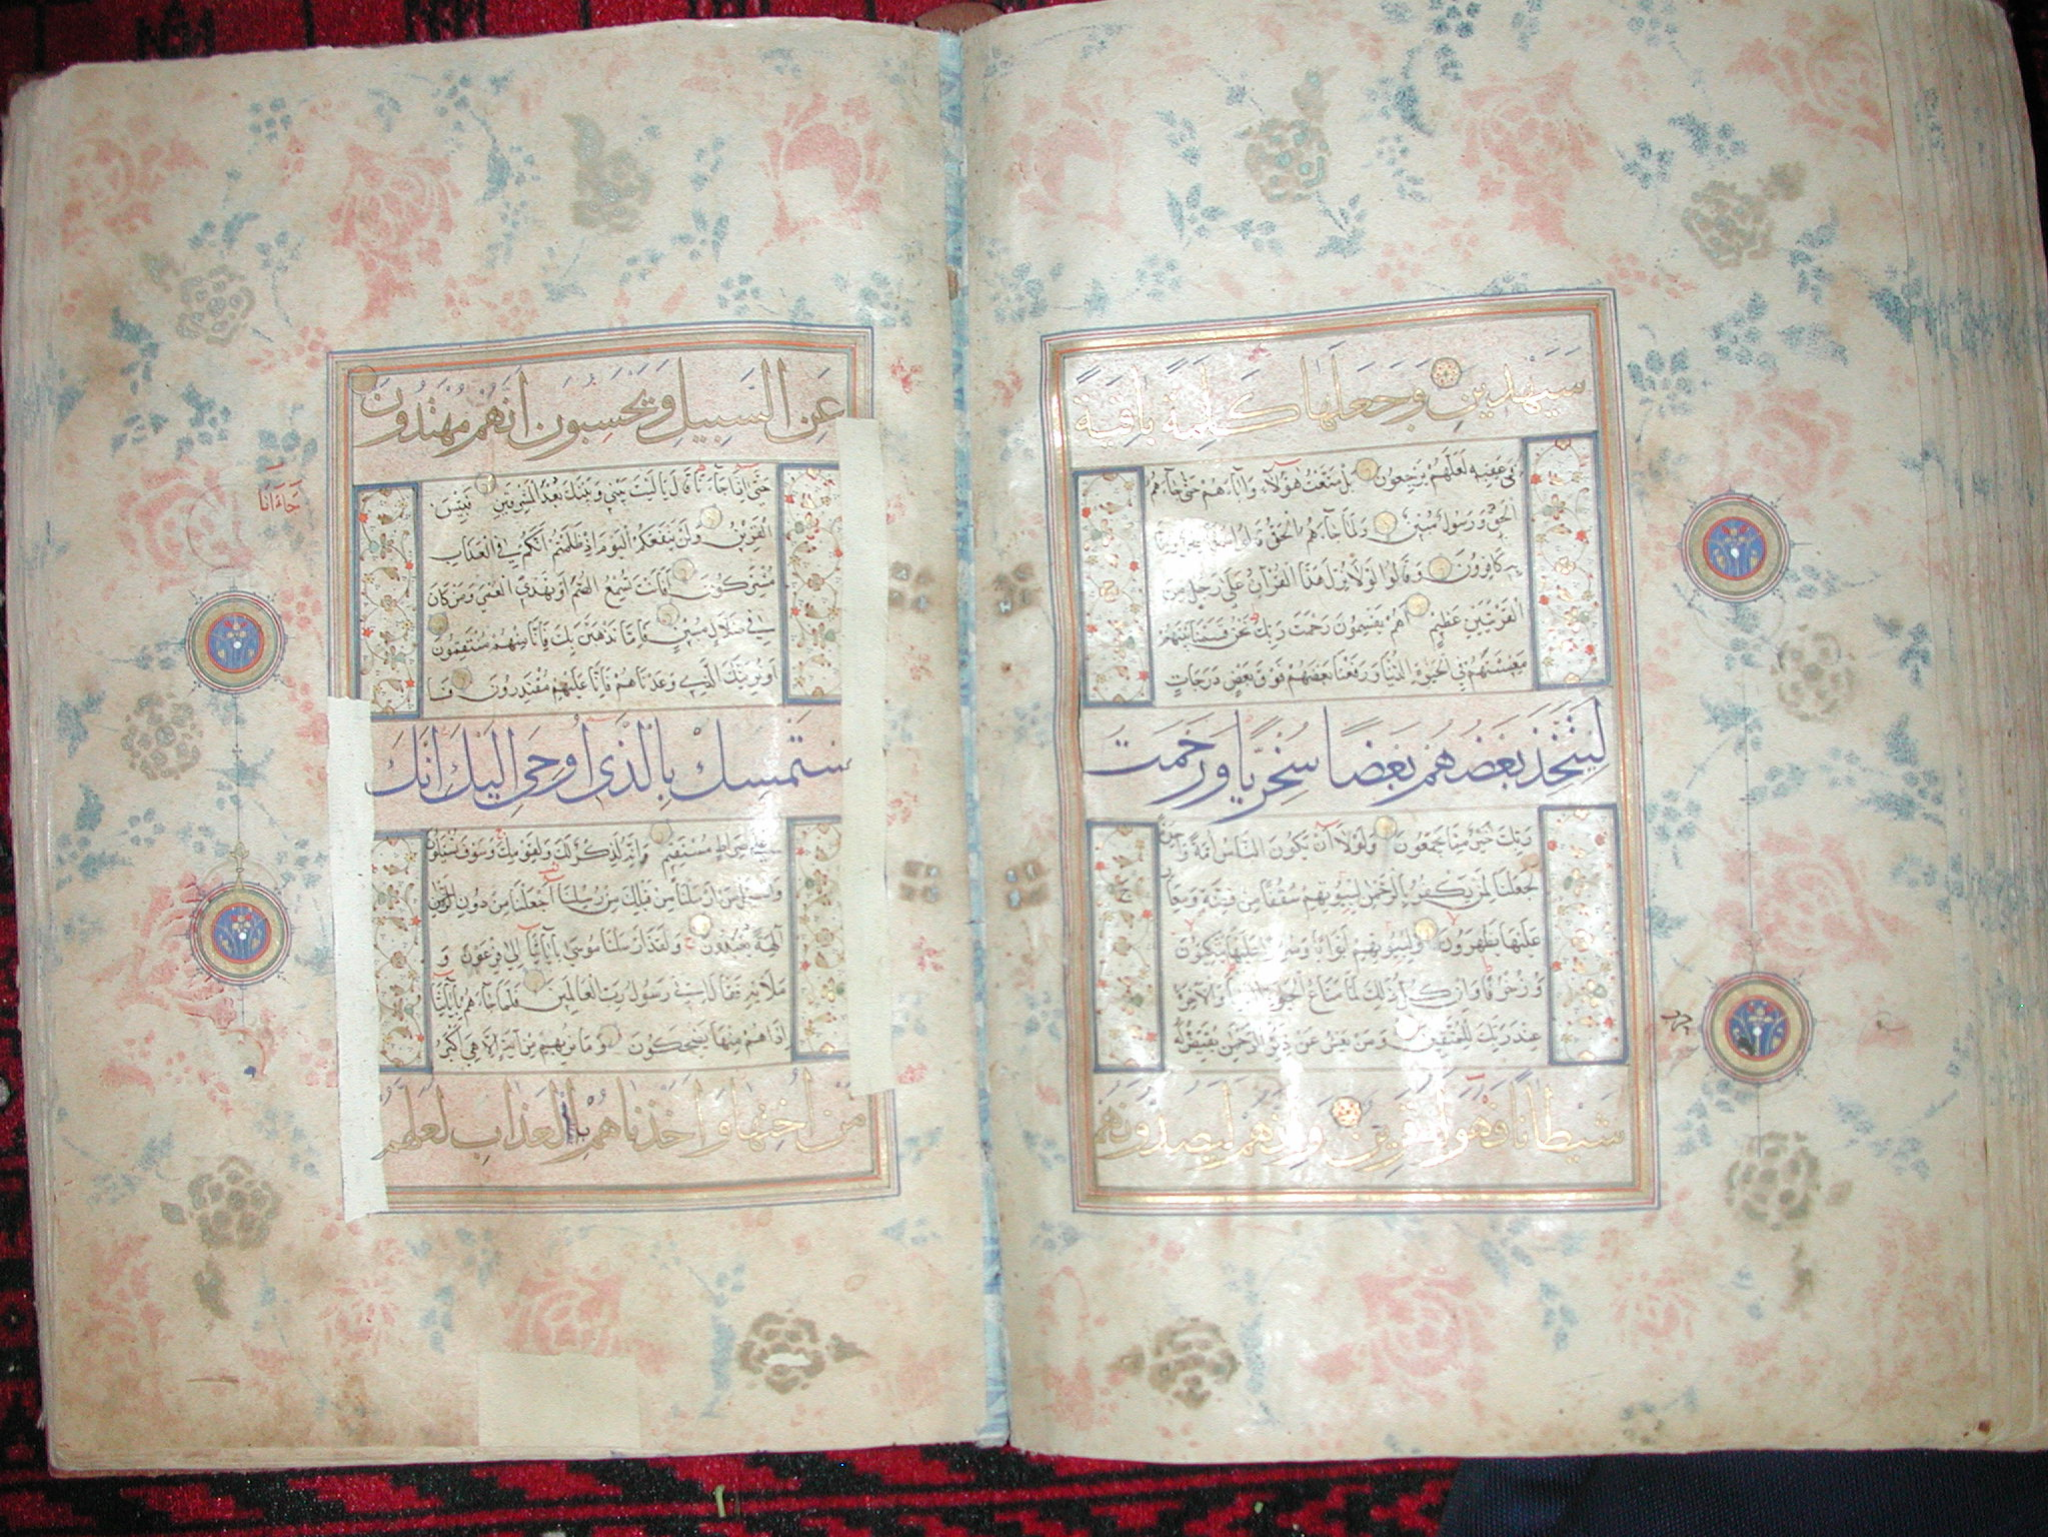 سَيَهْدِينِ وَجَعَلَهَا كَلِمَةً بَاقِيَةً
فِي عَقِبِهِ لَعَلَّهُمْ يَرْجِعُونَ بَلْ مَتَّعْتُ هٰؤُلَاءِ وَاٰبَاءَهُمْ حَتّٰى جَاءَهُمُ
الْحَقُّ وَرَسُولٌ مُبِينٌ وَلَمَّا جَاءَهُمُ الْحَقُّ قَالُوا هٰذَا سِحْرٌ وَاِنَّا
بِهِ كَافِرُونَ وَقَالُوا لَوْلَا نُزِّلَ هٰذَا الْقُرْاٰنُ عَلٰى رَجُلٍ مِنَ
الْقَرْيَتَيْنِ عَظِيمٍ اَهُمْ يَقْسِمُونَ رَحْمَتَ رَبِّكَ نَحْنُ قَسَمْنَا بَيْنَهُمْ
مَعِيشَتَهُمْ فِي الْحَيٰوةِ الدُّنْيَا وَرَفَعْنَا بَعْضَهُمْ فَوْقَ بَعْضٍ دَرَجَاتٍ
لِيَتَّخِذَ بَعْضُهُمْ بَعْضًا سُخْرِيًّا وَرَحْمَتُ
رَبِّكَ خَيْرٌ مِمَّا يَجْمَعُونَ وَلَوْلَا اَنْ يَكُونَ النَّاسُ اُمَّةً وَاحِدَةً
لَجَعَلْنَا لِمَنْ يَكْفُرُ بِالرَّحْمٰنِ لِبُيُوتِهِمْ سُقُفًا مِنْ فِضَّةٍ وَمَعَارِجَ
عَلَيْهَا يَظْهَرُونَ وَلِبُيُوتِهِمْ اَبْوَابًا وَسُرُرًا عَلَيْهَا يَتَّكِؤُنَ
وَزُخْرُفًا وَاِنْ كُلُّ ذٰلِكَ لَمَّا مَتَاعُ الْحَيٰوةِ الدُّنْيَا وَالْاٰخِرَةُ
عِنْدَ رَبِّكَ لِلْمُتَّقِينَ وَمَنْ يَعْشُ عَنْ ذِكْرِ الرَّحْمٰنِ نُقَيِّضْ لَهُ
شَيْطَانًا فَهُوَ لَهُ قَرِينٌ وَاِنَّهُمْ لَيَصُدُّونَهُمْ
عَنِ السَّبِيلِ وَيَحْسَبُونَ اَنَّهُمْ مُهْتَدُونَ
حَتّٰى اِذَا جَاءَنَا قَالَ يَا لَيْتَ بَيْنِي وَبَيْنَكَ بُعْدَ الْمَشْرِقَيْنِ فَبِئْسَ
الْقَرِينُ وَلَنْ يَنْفَعَكُمُ الْيَوْمَ اِذْ ظَلَمْتُمْ اَنَّكُمْ فِي الْعَذَابِ
مُشْتَرِكُونَ اَفَاَنْتَ تُسْمِعُ الصُّمَّ اَوْ تَهْدِي الْعُمْيَ وَمَنْ كَانَ
فِي ضَلَالٍ مُبِينٍ فَاِمَّا نَذْهَبَنَّ بِكَ فَاِنَّا مِنْهُمْ مُنْتَقِمُونَ
اَوْ نُرِيَنَّكَ الَّذِي وَعَدْنَاهُمْ فَاِنَّا عَلَيْهِمْ مُقْتَدِرُونَ فَا
سْتَمْسِكْ بِالَّذِي اُوحِيَ اِلَيْكَ اِنَّكَ
عَلٰى صِرَاطٍ مُسْتَقِيمٍ وَاِنَّهُ لَذِكْرٌ لَكَ وَلِقَوْمِكَ وَسَوْفَ تُسْئَلُونَ
وَاسْئَلْ مَنْ اَرْسَلْنَا مِنْ قَبْلِكَ مِنْ رُسُلِنَا اَجَعَلْنَا مِنْ دُونِ الرَّحْمٰنِ
اٰلِهَةً يُعْبَدُونَ وَلَقَدْ اَرْسَلْنَا مُوسٰى بِاٰيَاتِنَا اِلٰى فِرْعَوْنَ وَ
مَلَائِهِ فَقَالَ اِنِّي رَسُولُ رَبِّ الْعَالَمِينَ فَلَمَّا جَاءَهُمْ بِاٰيَاتِنَا
اِذَا هُمْ مِنْهَا يَضْحَكُونَ وَمَا نُرِيهِمْ مِنْ اٰيَةٍ اِلَّا هِيَ اَكْبَرُ
مِنْ اُخْتِهَا وَاَخَذْنَاهُمْ بِالْعَذَابِ لَعَلَّهُمْ
جَاءَانَا